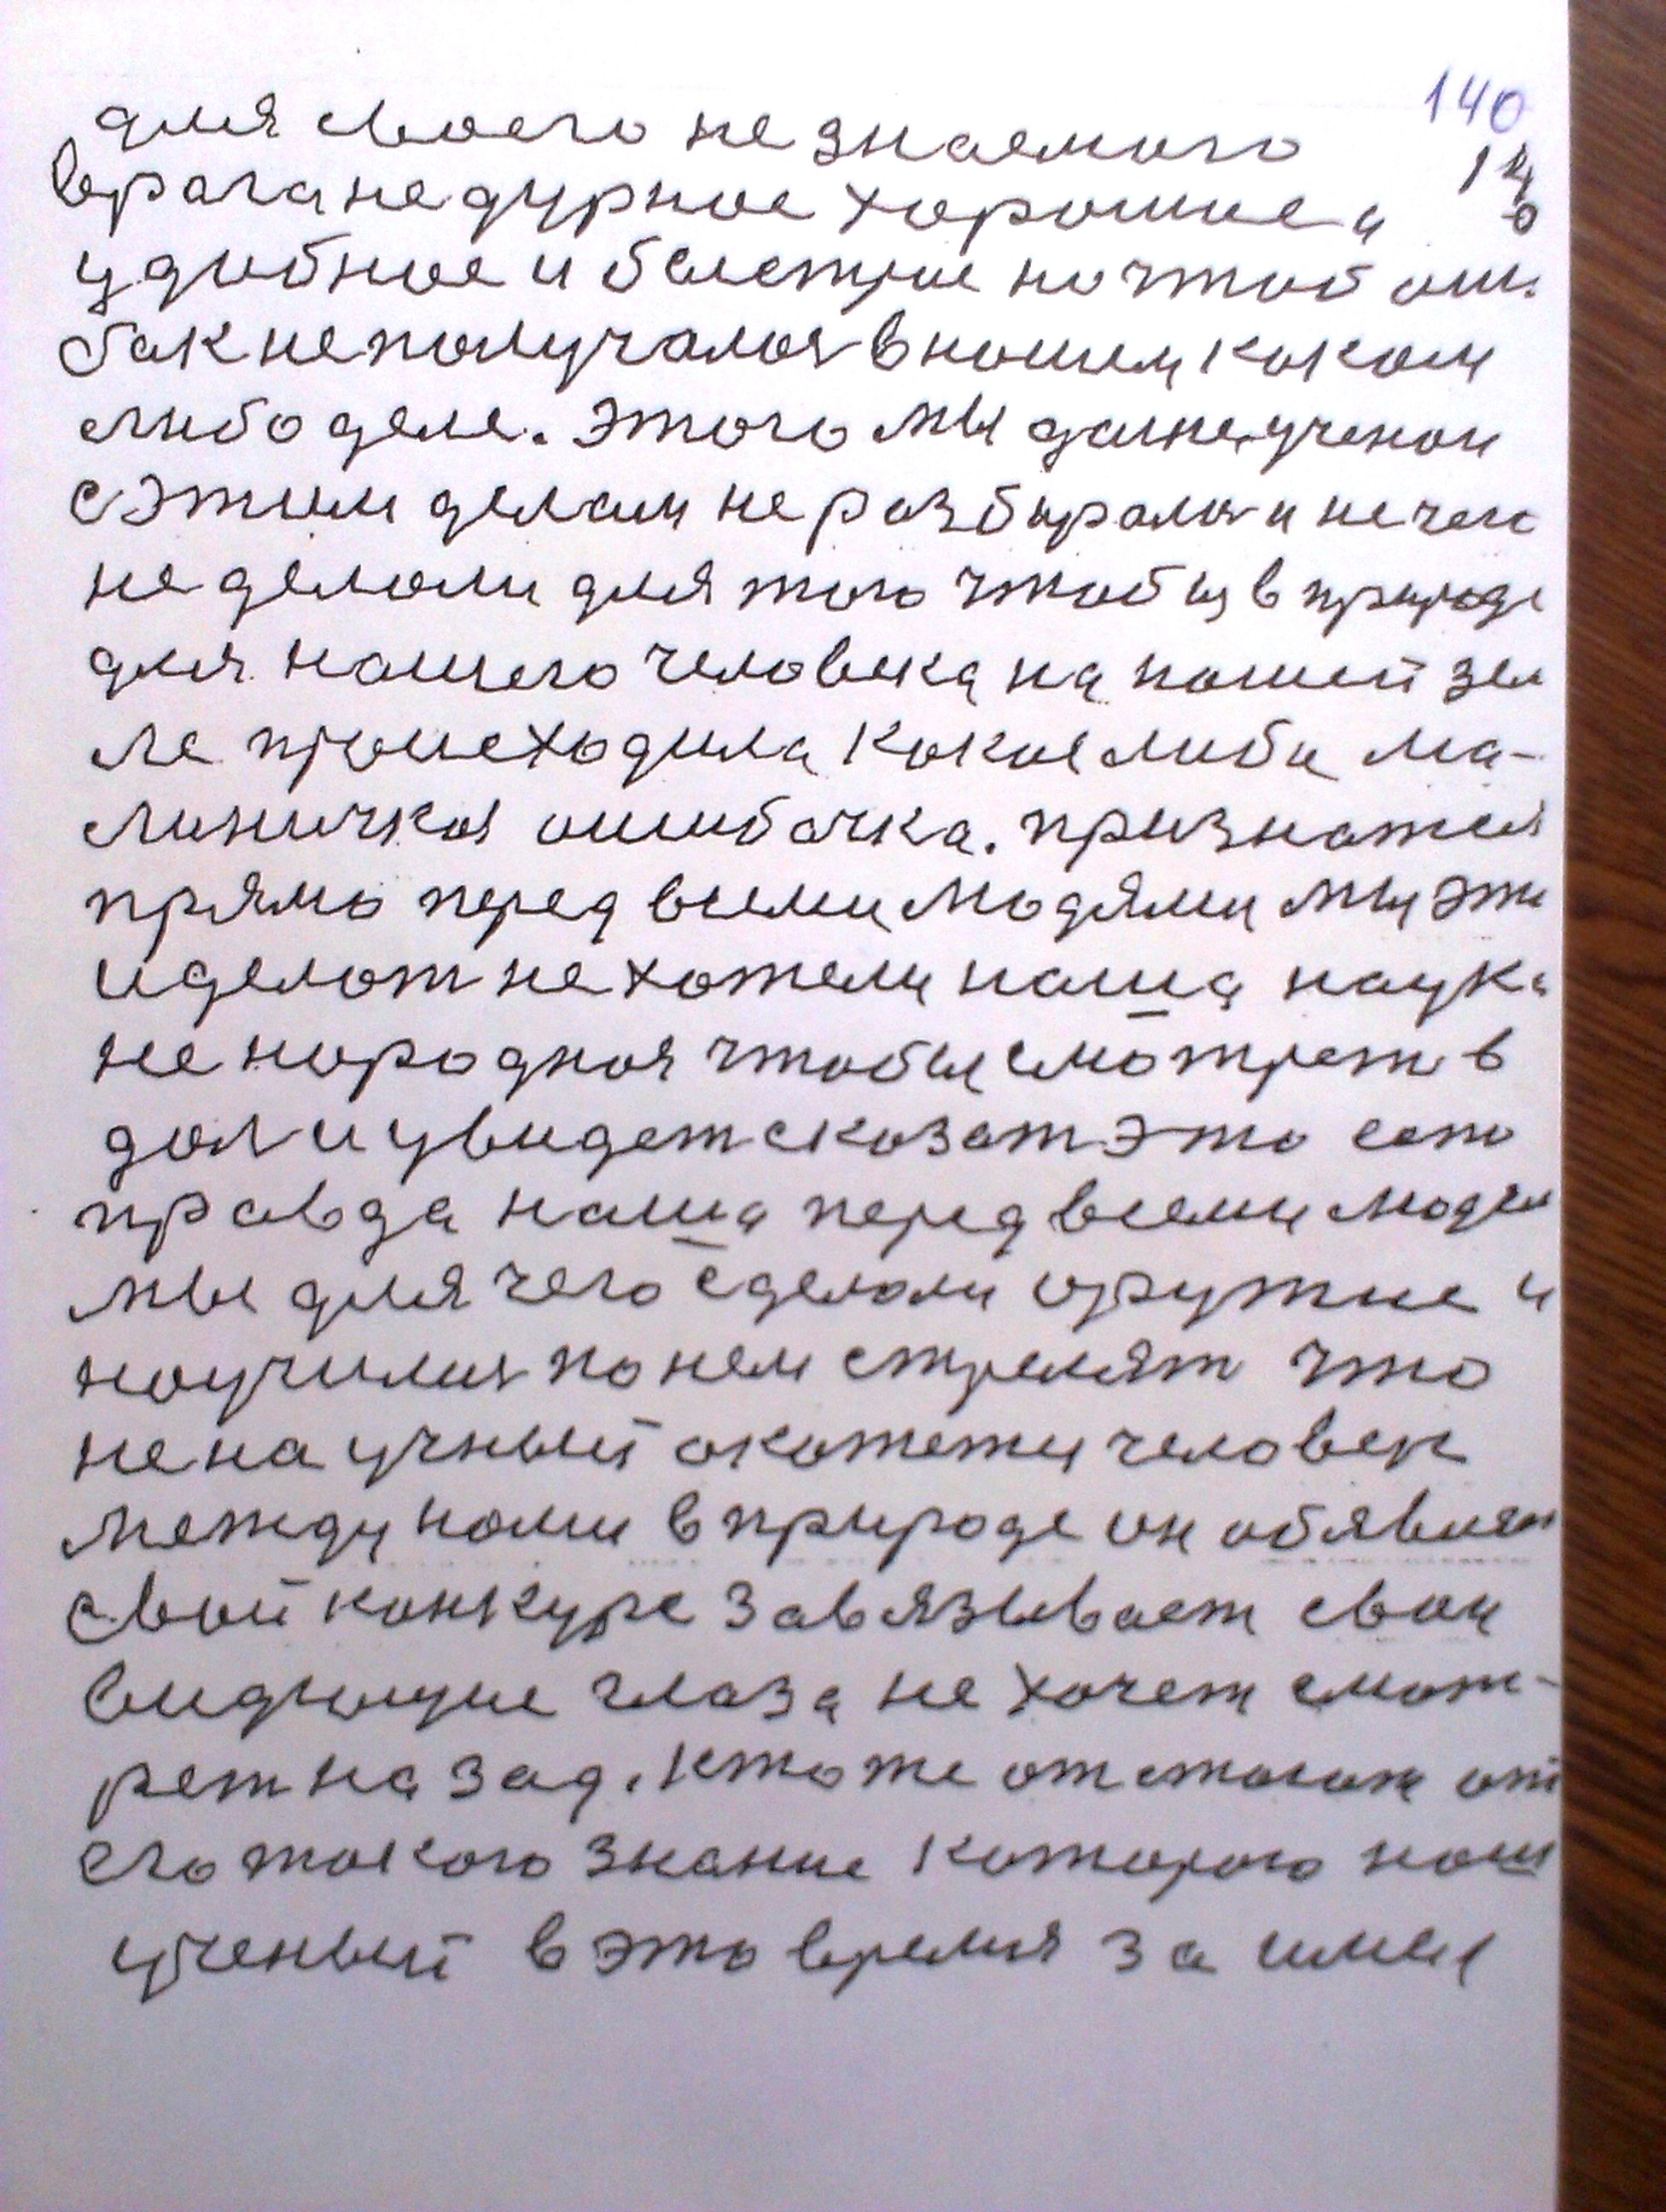 140
для своего не знаемого
140
врага не дурное хорошие а
удобное и быстрое но чтоб ош.
бак не получалося в нашем каком
либо деле. Этого мы даже учеными
с этим делам не разбиралися и нечего
не делали для того чтобы в природе
для нашего человека на нашей зем
ле происходила какое либо ма-
линичкоя ошибочка. признатся
прямо перед всеми людями мы это
и делат не хотели наша наука
не народная чтобы смотрет в
дол и увидет сказат это есть
правда наша перед всеми людям
мы для чего сделали оружие и
научилися по нем стрелят что
не научный окажеты человек
между нами в природе он обявляет
свой конкурс завязывает свои
видющие глаза не хочет смот-
рет на зад. Кто же от стоит от
его такого знание которого наш
ученый в это время за имел